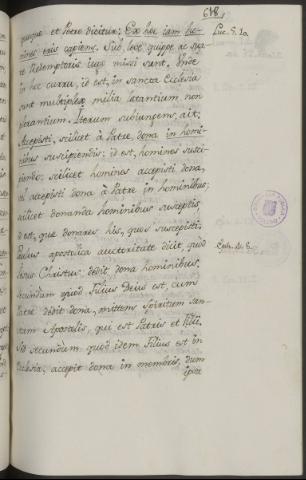 648.
quoque et Petro dicitur: Ex hoc iam ho- Luc. 5. 10
mines eris capiens. Sub hoc quippe
Redemptoris iugo missi sunt. Unde
in hoc curru, id est, in sancta Ecclesia
sunt multiplex milia lætantium non
Iterum subiungens, ait:
Accepisti, scilicet à Patre, dona in homi-
nibus suscipiendis; id est, homines susci-
piendo: scilicet homines accepisti dona,
vel accepisti dona à Patre in hominibus;
scilicet donanda hominibus susceptis,
id est, que donares his, quos suscepisti;
Paulus apostolica auctoritate dicit, quod Eph. 4. 8.
Christus dedit dona hominibus.
Secundum quod Filius Deus est, cum
Patre dedit dona, mittens Spiritum San-
tum Apostolis, qui est Patris et Filii.
Sed secundum quod idem Filius est in
Ecclesia, accepit dona in membris, dum
ipsa